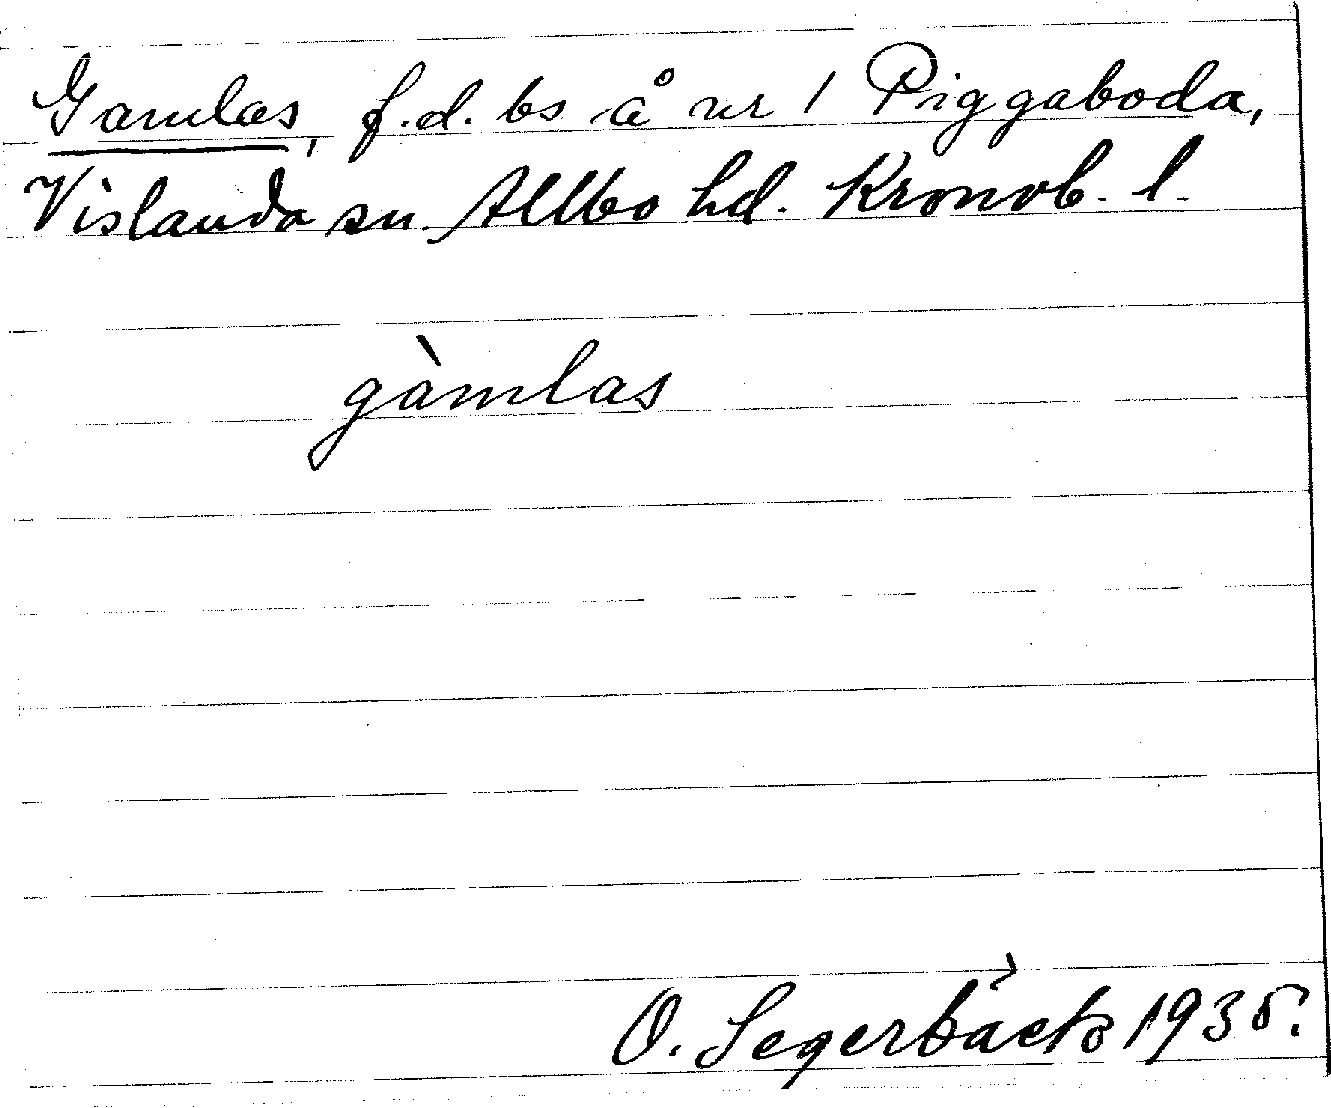 Gamlas, f.d. bs å nr 1 Piggaboda,
Vislanda sn. Allbo hd. Kronob. l.
gàmlas
O. Segerbäck 1935.